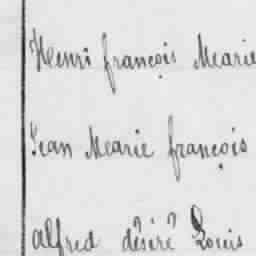 Henri françois Marie
Jean Marie françois
alfred désiré Louis